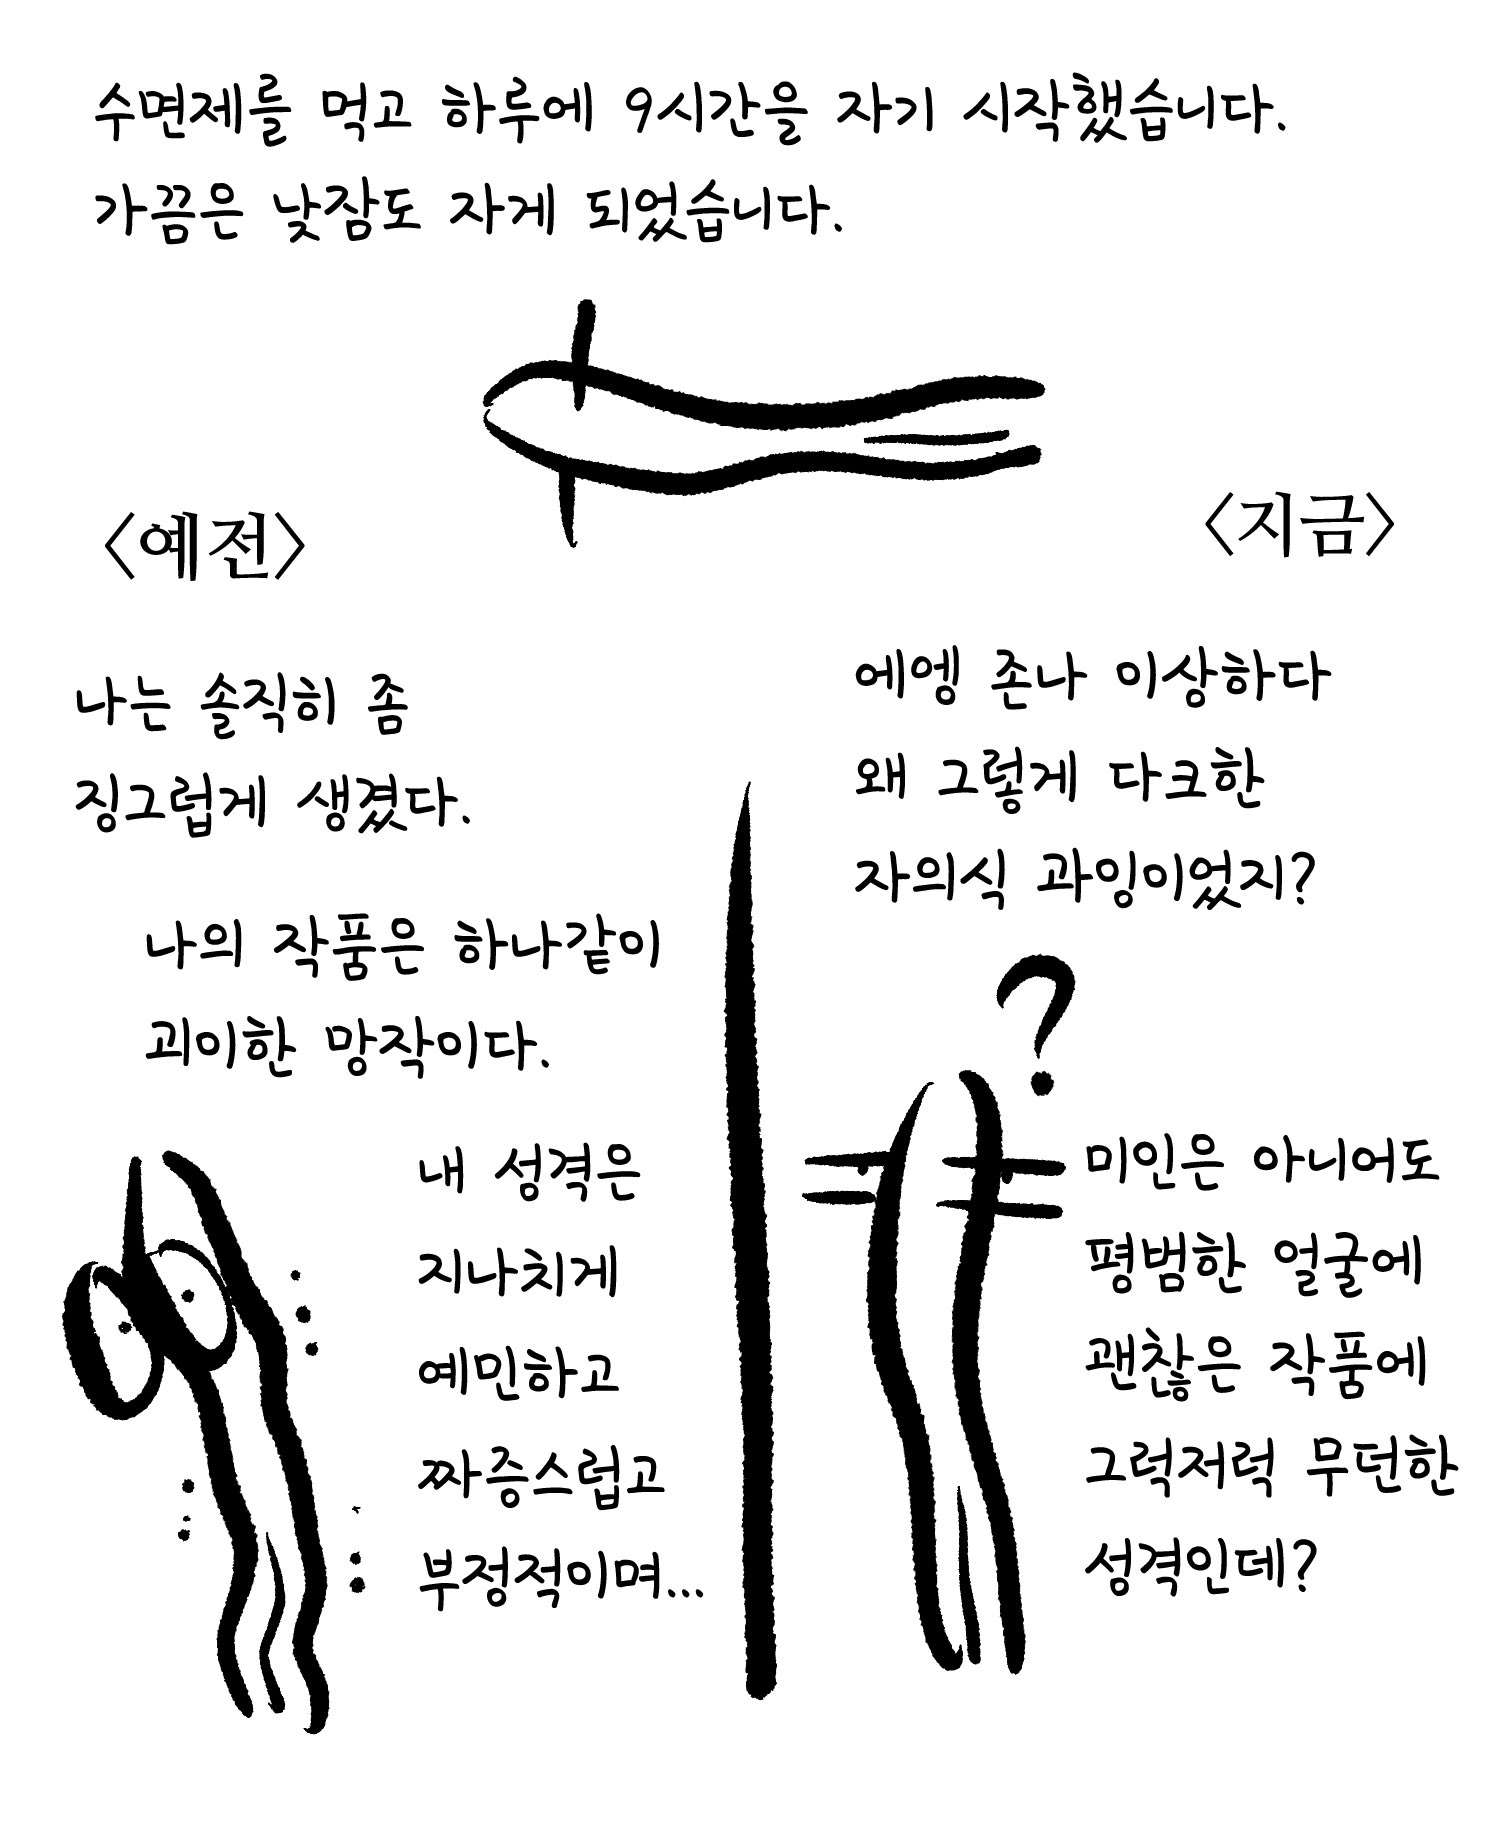 수면제를 먹고 하루에 9시간을 자기 시작했습니다.
가끔은 낮잠도 자게 되었습니다.
<예전>
나는 솔직히 좀
징그럽게 생겼다.
나의 작품은 하나같이
괴이한 망작이다.
내 성격은
지나치게
예민하고
짜증스럽고
부정적이며...
<지금>
에엥 존나 이상하다
왜 그렇게 다크한
자의식 과잉이었지?
?
미인은 아니어도
평범한 얼굴에
괜찮은 작품에
그럭저럭 무던한
성격인데?